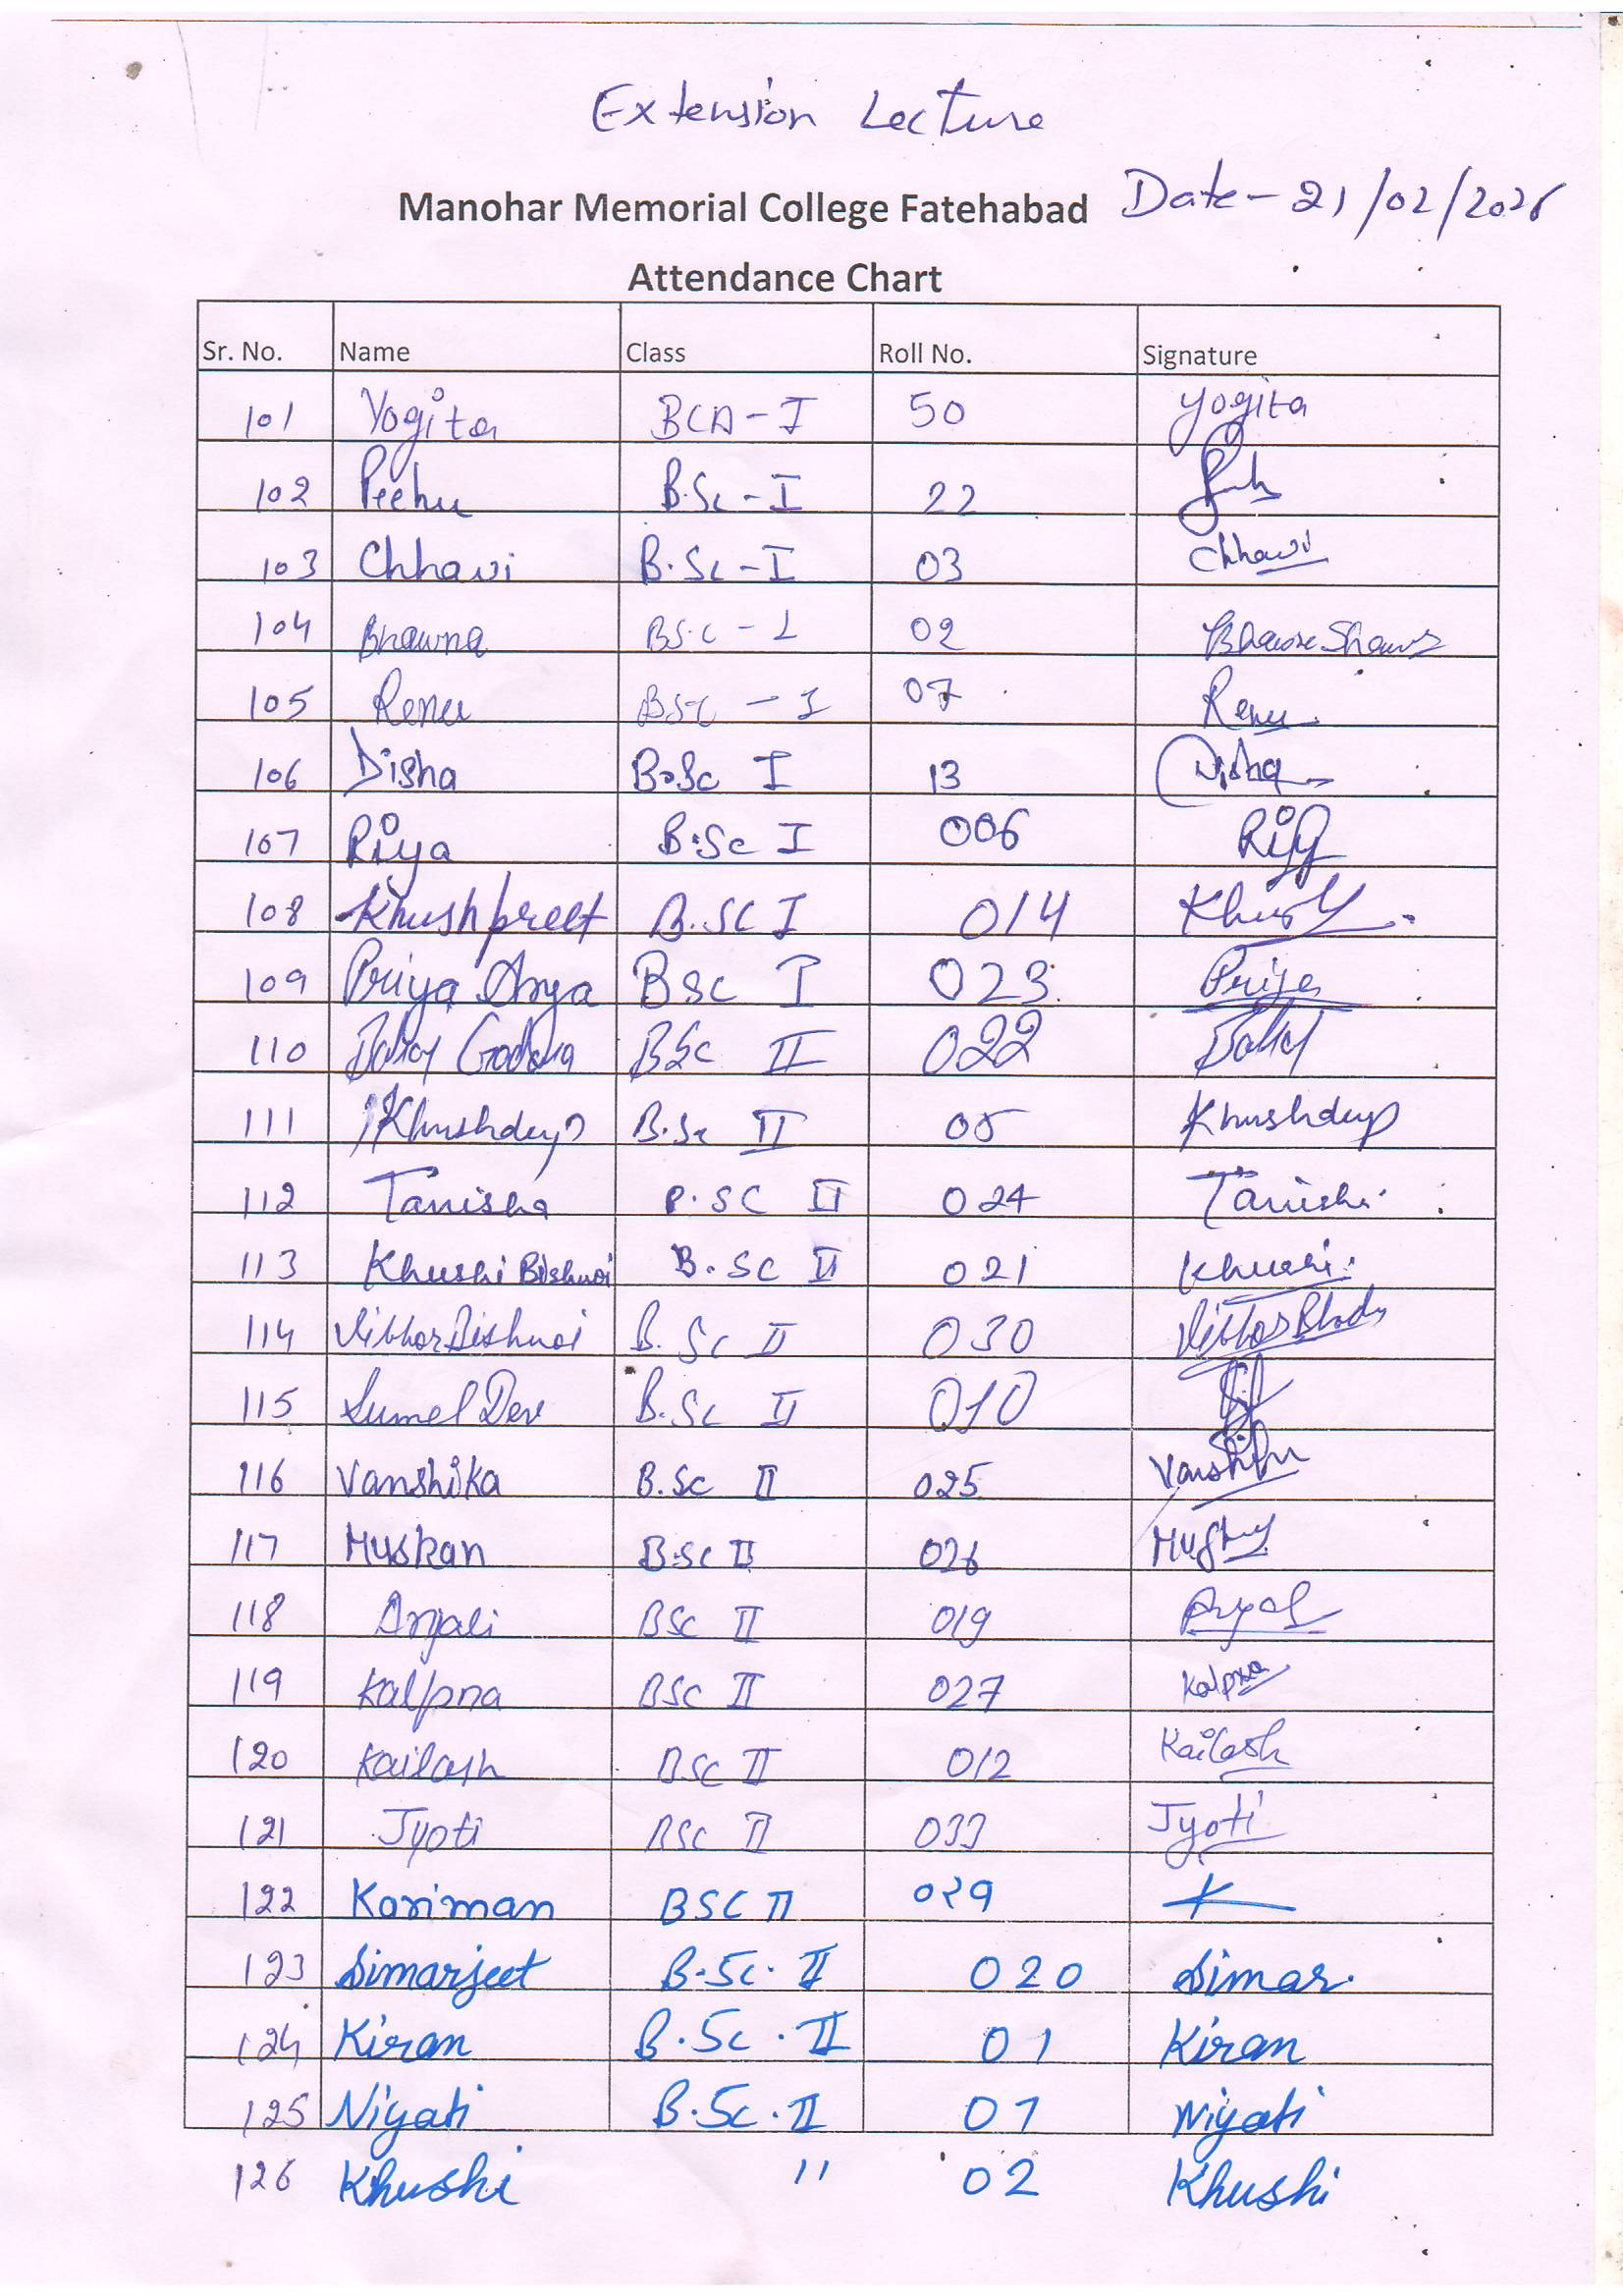 Extension Lecture
Manohar Memorial College Fatehabad Date - 21/02/2026
Attendance Chart
Sr. No. Name Class Roll No. Signature
101 Yogita BCA-I 50 Yogita
102 Peehu B.Sc-I 22
103 Chhavi B.Sc-I 03 Chhavi
104 Bhawna BSC-I 02
105 Renu BSC-I 07 Renu
106 Disha B.Sc I 13 Disha
107 Riya B.Sc I 006
108 Khushpreet B.SC I 014
109 Priya Arya BSC I 023 Priya
110 BSc II 022
111 Khushdeep B.Sc II 05 Khushdeep
112 Tanisha B.SC II 024
113 Khushi Bishnoi B.SC II 021 Khushi
114 Vibhor Bishnoi B.Sc II 030
115 B.Sc II 010
116 Vanshika B.Sc II 025
117 Muskan B.SC II 026
118 Anjali BSC II 019
119 Kalpna BSC II 027 Kalpna
120 Kailash BSC II 012 Kailash
121 Jyoti BSC II 033 Jyoti
122 Kariman BSC II 029 K
123 Simarjeet B.Sc. II 020 Simar
124 Kiran B.Sc. II 01 Kiran
125 Niyati B.Sc. II 07 Niyati
126 Khushi " 02 Khushi